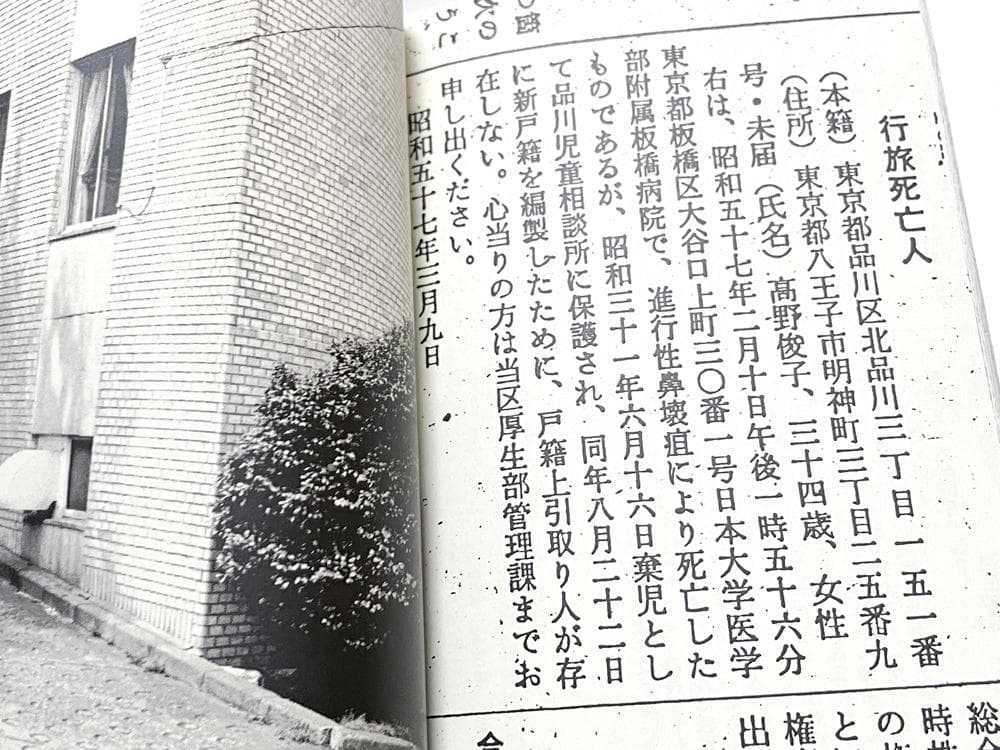 行旅死亡人
(本籍) 東京都品川区北品川三丁目一五一番
(住所) 東京都八王子市明神町三丁目二五番九
号・未届(氏名) 髙野俊子、三十四歳、女性
右は、昭和五十七年二月十日午後一時五十六分
東京都板橋区大谷口上町三〇番一号日本大学医学
部附属板橋病院で、進行性鼻壊疽により死亡した
ものであるが、昭和三十一年六月十六日棄児とし
て品川児童相談所に保護され、同年八月二十二日
に新戸籍を編製したために、戸籍上引取り人が存
在しない。心当りの方は当区厚生部管理課までお
申し出ください。
昭和五十七年三月九日
総会
時
の
と
権
出